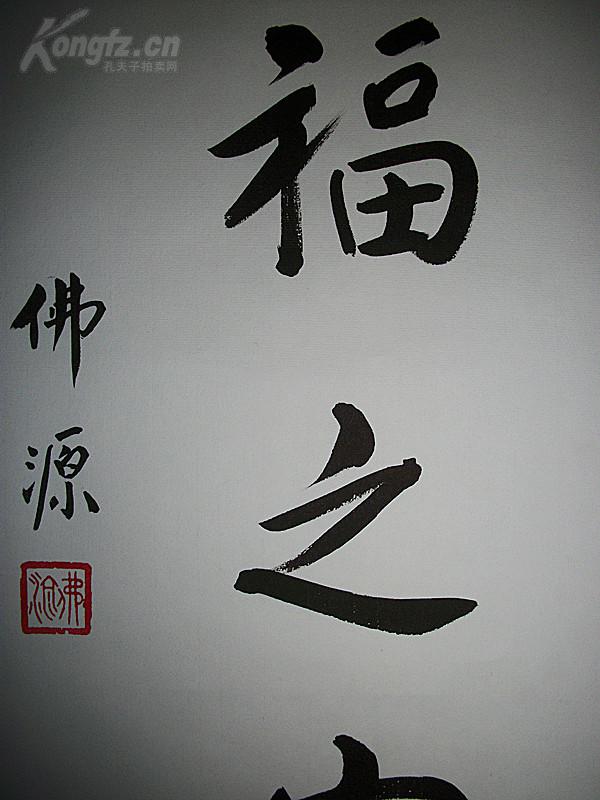 Kongfz.cn
孔夫子拍卖网
福之
佛源